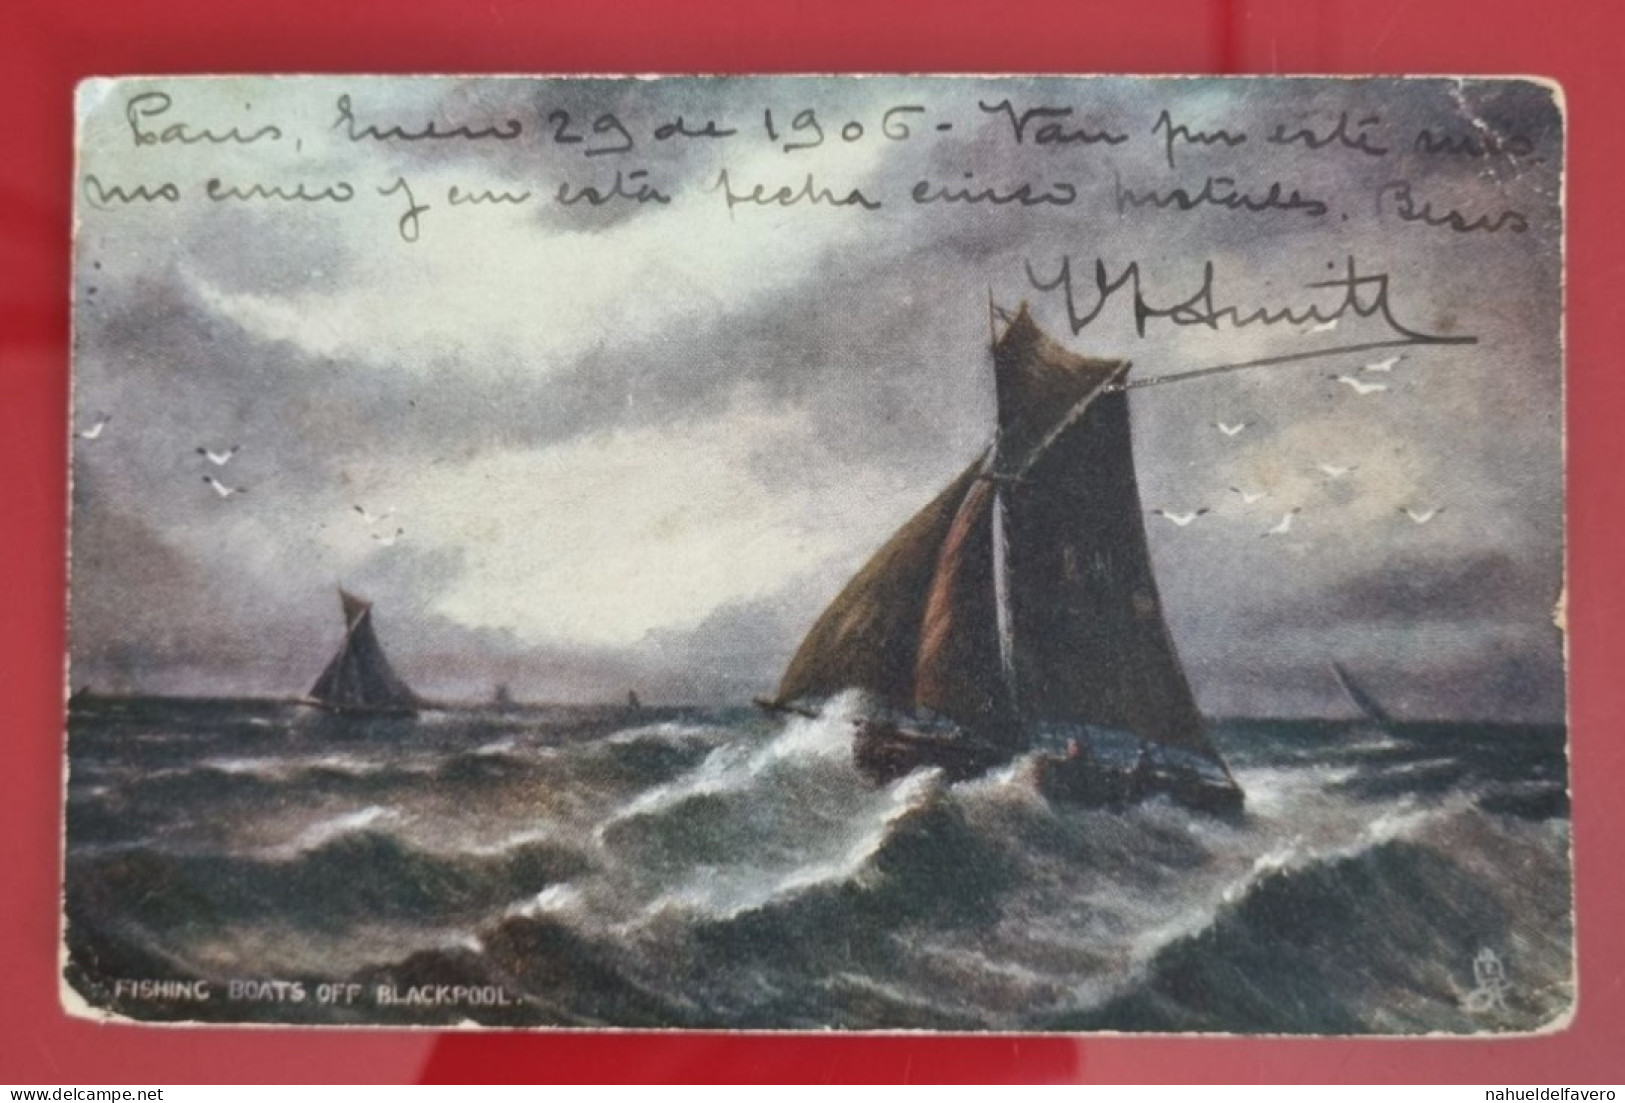 Paris, Enero 29 de 1906 - Van por este mis
mo correo y en esta fecha cinco postales. Besos
Smith
FISHING BOATS OFF BLACKPOOL.
nahueldelfavero